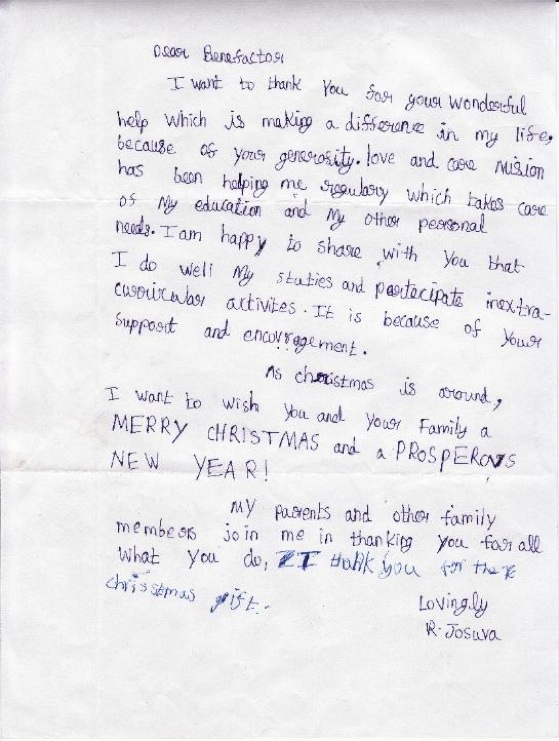 Dear Benefactor
I want to thank you for your wonderful
help which is making a difference in my life,
because of your generosity. love and care Mision
has been helping me regulary which takes care
of My education and My other personal
needs. I am happy to share with you that
I do well My stuties and partecipate inextra-
curricular activites. It is because of your
Support and encouragement.
As christmas is around,
I want to wish you and your Family a
MERRY CHRISTMAS and a PROSPEROUS
NEW YEAR!
My parents and other family
members join me in thanking you for all
what you do, I thank you for the
chrisstmas gift.
Lovingly
R. Josuva